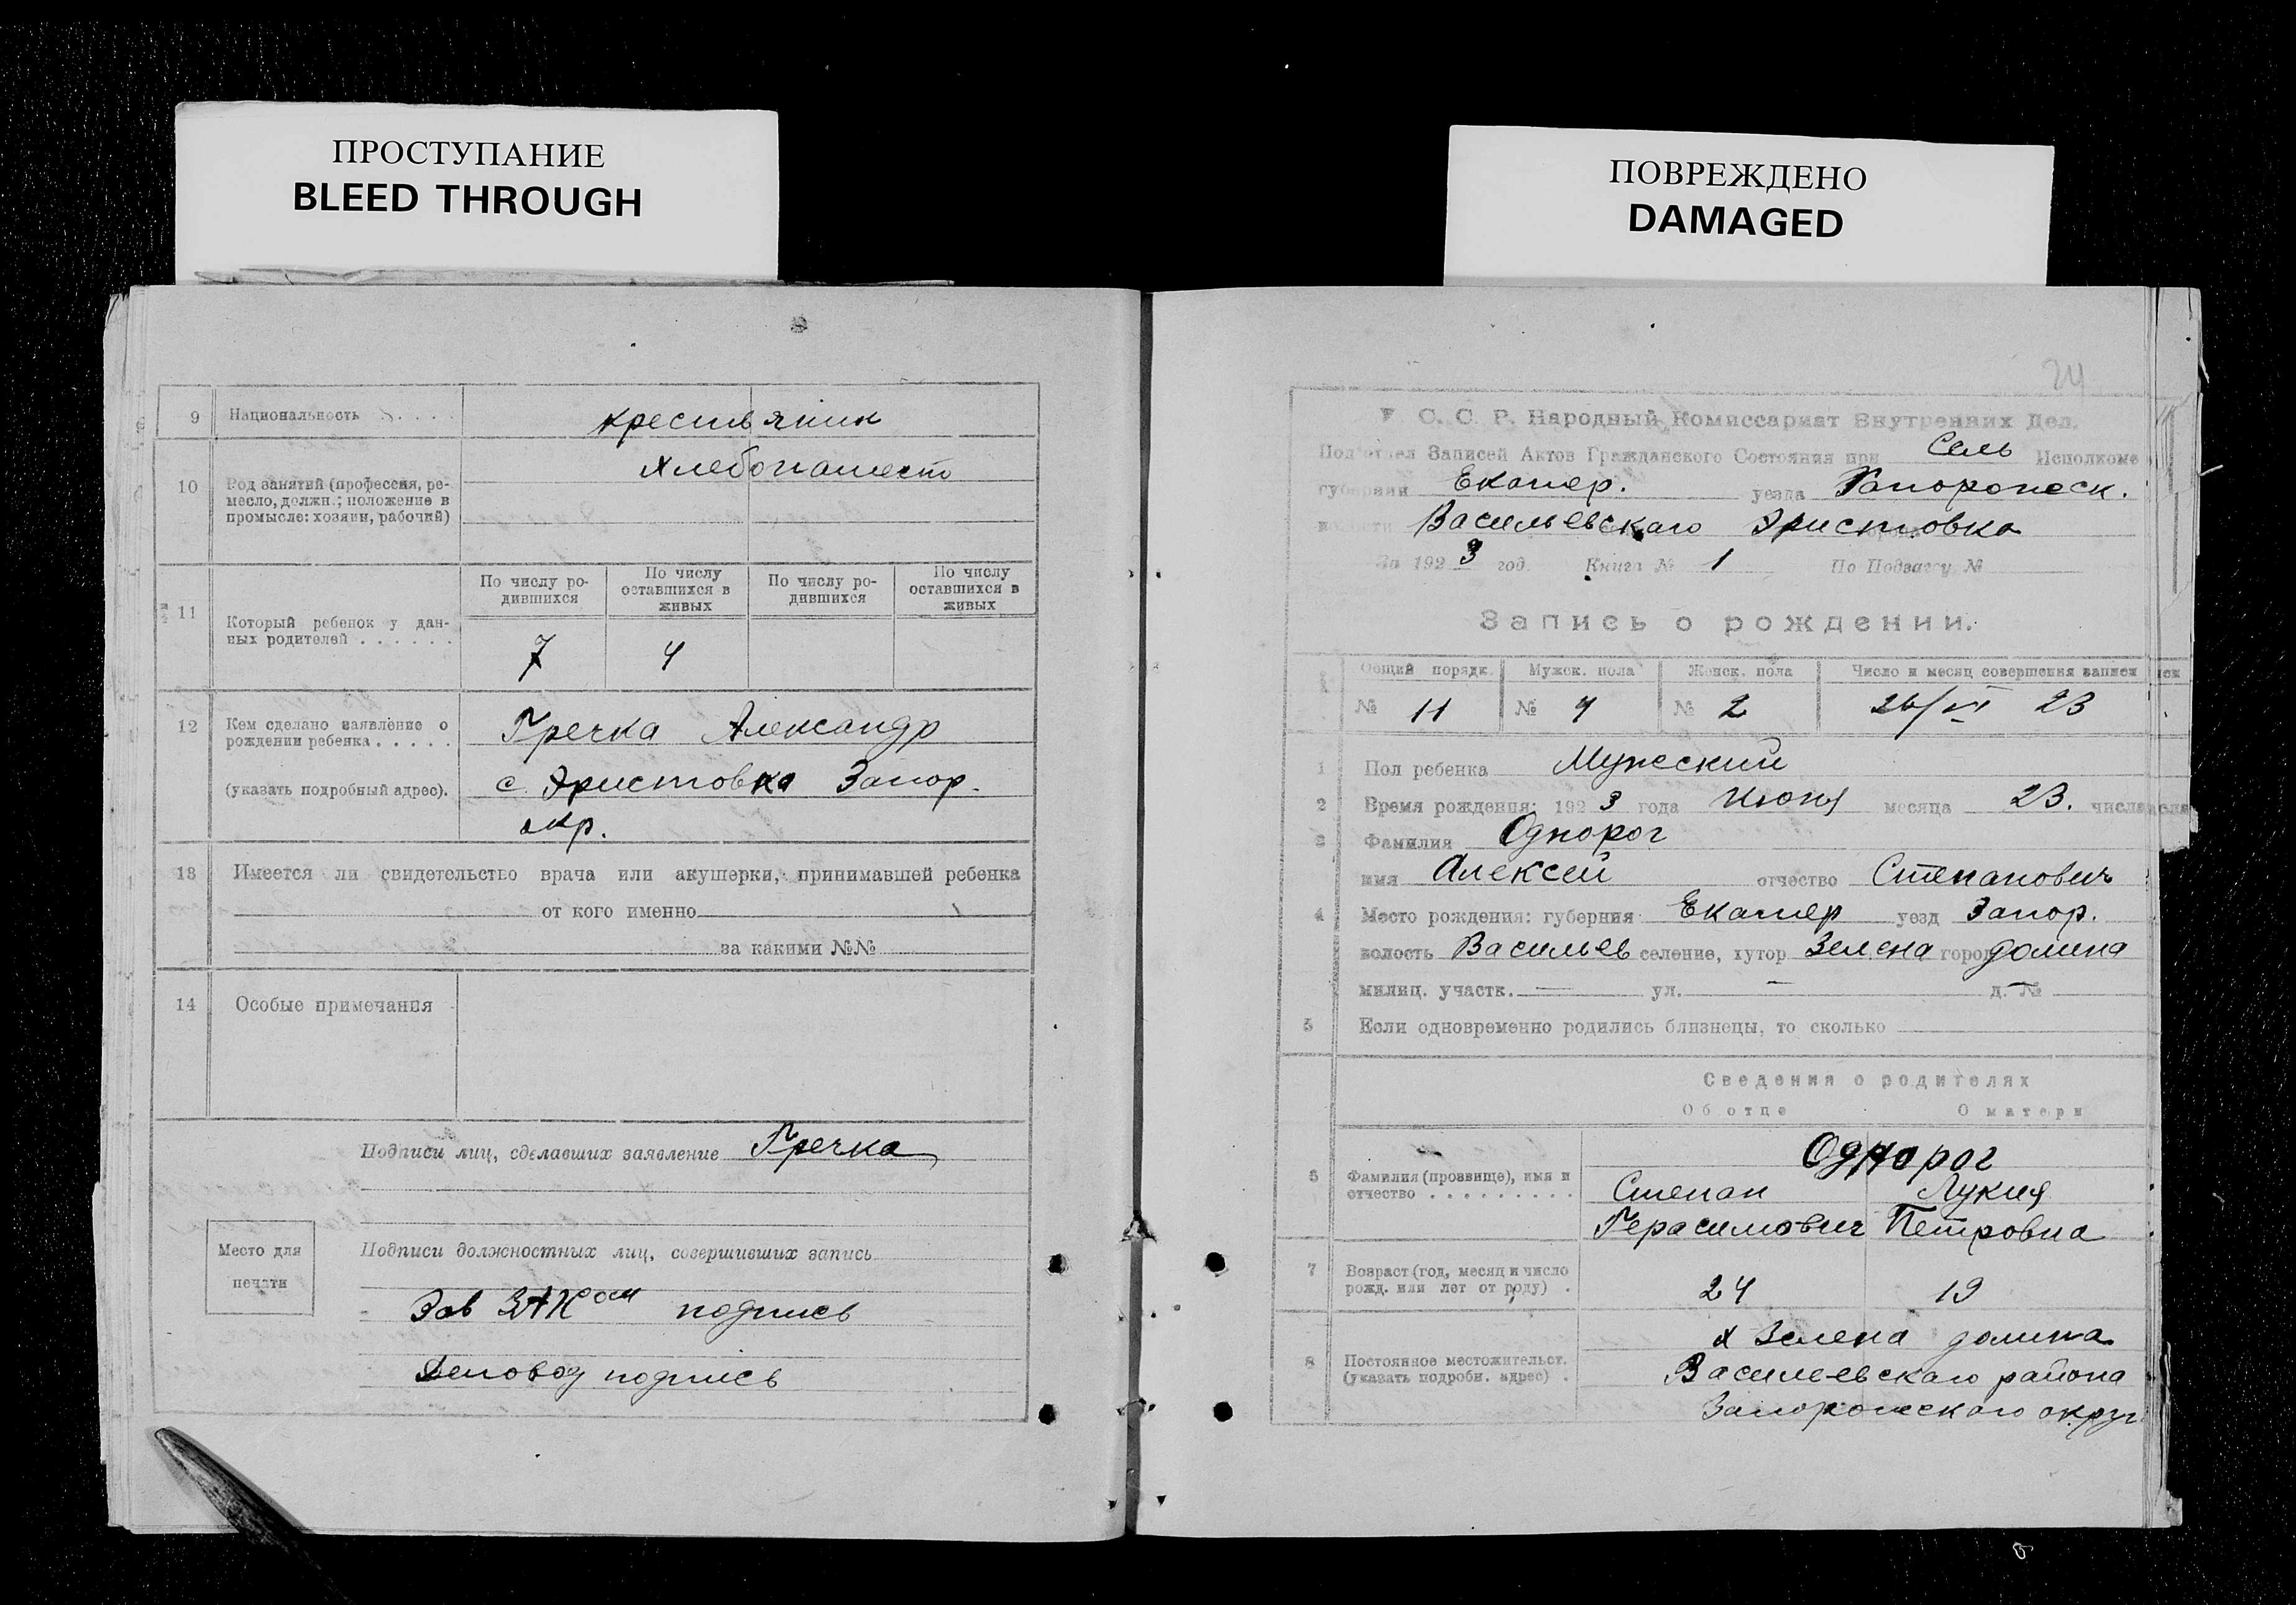 ПРОСТУПАНИЕ
BLEED THROUGH
9 Национальность . . . . крестьянин
хлебопашест
10 Род занятий (профессия, ре-
месло, должн.; положение в
промысле: хозяин, рабочий)
11 Который ребенок у дан-
ных родителей . . . . . .
По числу ро-
дившихся
По числу
оставшихся в
живых
По числу ро-
дившихся
По числу
оставшихся в
живых
7 4
12 Кем сделано заявление о
рождении ребенка . . . . .
(указать подробный адрес).
Гречка Александр
с. Эристовка Запор.
окр.
13 Имеется ли свидетельство врача или акушерки, принимавшей ребенка
от кого именно
за какими №№
14 Особые примечания
Подписи лиц, сделавших заявление Гречка
Место для
печати
Подписи должностных лиц, совершивших запись
Зав ЗАГСом подпись
Деловод подпись
ПОВРЕЖДЕНО
DAMAGED
24
С. С. Р. Народный Комиссариат Внутренних Дел.
Под'отдел Записей Актов Гражданского Состояния при Сель Исполкоме
губернии Екатер. уезда Запорожск.
волости Васильевскаго Эристовка
За 1923 год. Книга № 1 По Подзагсу №
Запись о рождении.
Общий порядк. Мужск. пола Женск. пола Число и месяц совершения записи
№ 11 № 4 № 2 26/VI 23
1 Пол ребенка Мужеский
2 Время рождения: 1923 года Июня месяца 23. числа
3 Фамилия Однорог
имя Алексей отчество Степанович
4 Место рождения: губерния Екатер уезд Запор.
волость Васильев селение, хутор Зелена город долина
милиц. участк. — ул. — д. № —
5 Если одновременно родились близнецы, то сколько
Сведения о родителях
Об отце О матери
6 Фамилия (прозвище), имя и
отчество . . . . . . . . .
Однорог
Степан Лукия
Герасимович Петровна
7 Возраст (год, месяц и число
рожд. или лет от роду) .
24 19
8 Постоянное местожительст.
(указать подробн. адрес) .
х Зелена долина
Василевскаго района
Запорожскаго округ